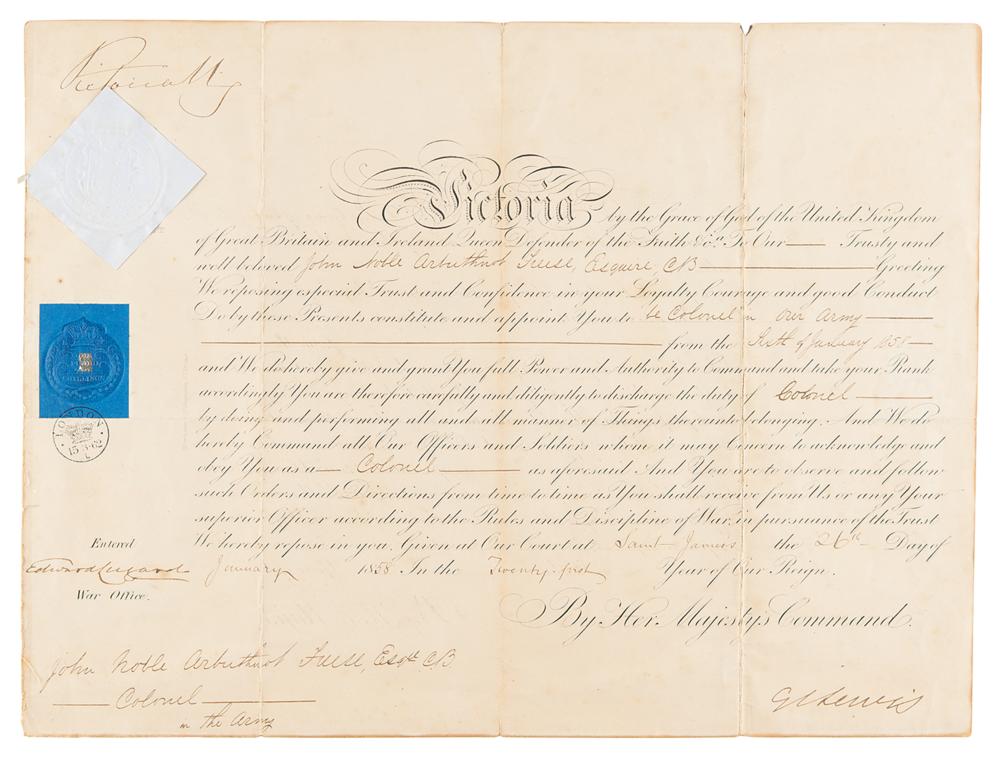 Victoria R
Victoria by the Grace of God of the United Kingdom
of Great Britain and Ireland Queen Defender of the Faith &c. To Our Trusty and
well beloved John Noble Arbuthnot Freese, Esquire, CB Greeting
We reposing especial Trust and Confidence in your Loyalty Courage and good Conduct
Do by these Presents constitute and appoint You to be Colonel in Our Army
from the of January 1858
and We do hereby give and grant You full Power and Authority to Command and take your Rank
accordingly You are therefore carefully and diligently to discharge the duty of Colonel
by doing and performing all and all manner of Things thereunto belonging. And We do
hereby Command all Our Officers and Soldiers whom it may Concern to acknowledge and
obey You as a Colonel as aforesaid And You are to observe and follow
such Orders and Directions from time to time as You shall receive from Us or any Your
superior Officer according to the Rules and Discipline of War, in pursuance of the Trust
We hereby repose in you. Given at Our Court at Saint James's the 26th Day of
January 1858 In the Twenty first Year of Our Reign.
By Her Majesty's Command.
SHILLINGS
LONDON
Entered
Edward Lugard
War Office.
John Noble Arbuthnot Freese, Esqre CB
Colonel
in the Army
G C Lewis